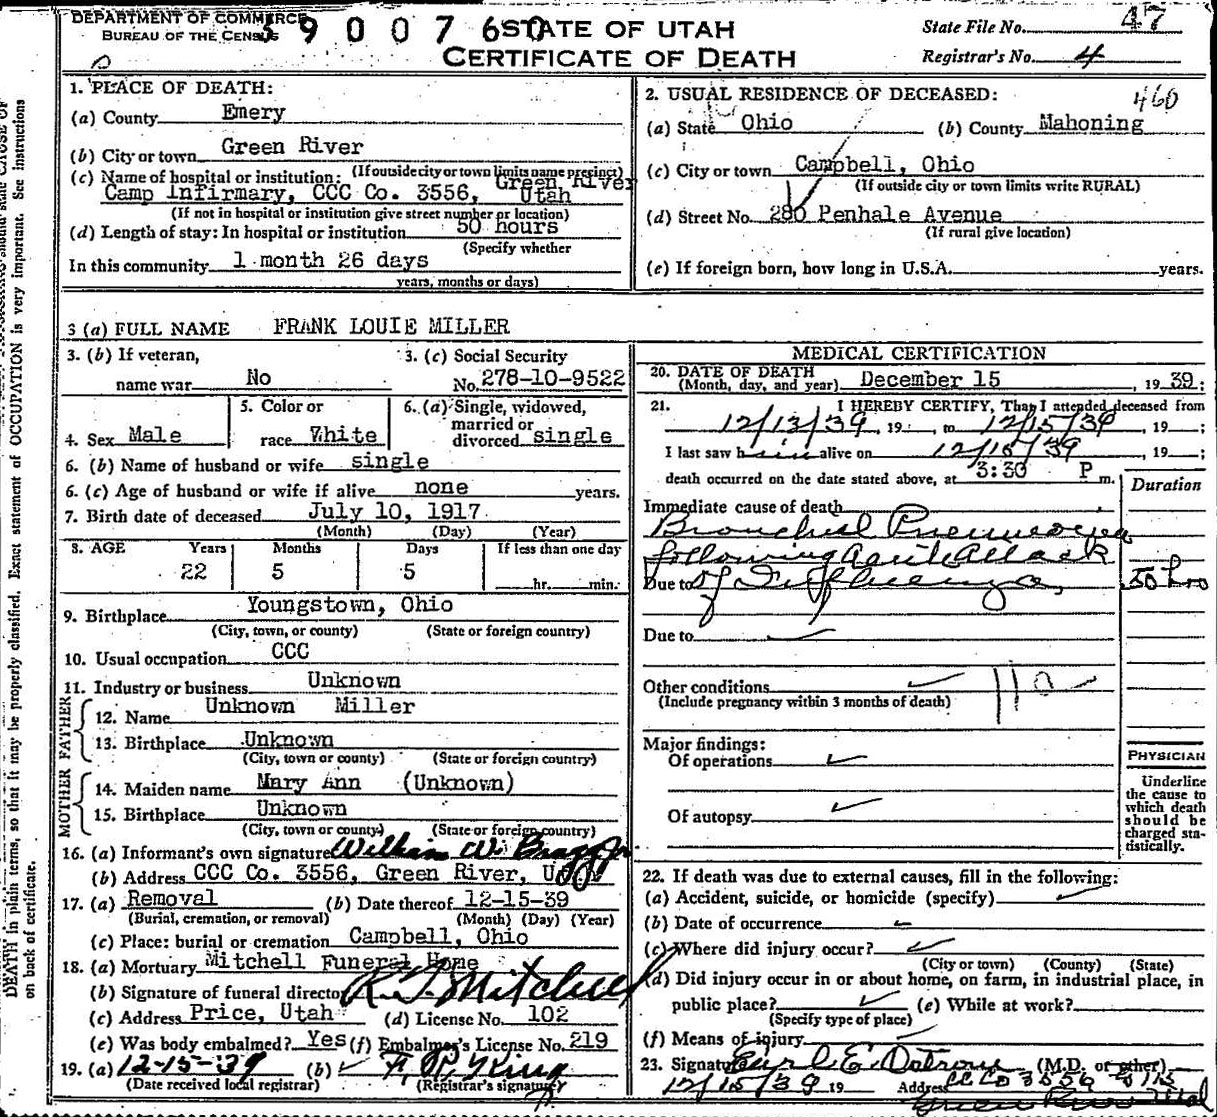 DEPARTMENT OF COMMERCE
BUREAU OF THE CENSUS
3900760
STATE OF UTAH
CERTIFICATE OF DEATH
State File No. 47
Registrar's No. 4
1. PLACE OF DEATH:
(a) County Emery
(b) City or town Green River
(If outside city or town limits name precinct)
(c) Name of hospital or institution: Green River
Camp Infirmary, CCC Co. 3556, Utah
(If not in hospital or institution give street number or location)
(d) Length of stay: In hospital or institution 50 hours
(Specify whether
In this community 1 month 26 days
years, months or days)
2. USUAL RESIDENCE OF DECEASED:
460
(a) State Ohio (b) County Mahoning
(c) City or town Campbell, Ohio
(If outside city or town limits write RURAL)
(d) Street No. 280 Penhale Avenue
(If rural give location)
(e) If foreign born, how long in U.S.A. years.
3 (a) FULL NAME FRANK LOUIE MILLER
3. (b) If veteran,
name war No
3. (c) Social Security
No. 278-10-9522
4. Sex Male
5. Color or
race White
6. (a) Single, widowed,
married or
divorced single
6. (b) Name of husband or wife single
6. (c) Age of husband or wife if alive none years.
7. Birth date of deceased July 10, 1917
(Month) (Day) (Year)
8. AGE Years Months Days If less than one day
22 5 5 hr. min.
9. Birthplace Youngstown, Ohio
(City, town, or county) (State or foreign country)
10. Usual occupation CCC
11. Industry or business Unknown
FATHER
12. Name Unknown Miller
13. Birthplace Unknown
(City, town or county) (State or foreign country)
MOTHER
14. Maiden name Mary Ann (Unknown)
15. Birthplace Unknown
(City, town or county) (State or foreign country)
16. (a) Informant's own signature William W. Bragg Jr
(b) Address CCC Co. 3556, Green River,
17. (a) Removal (b) Date thereof 12-15-39
(Burial, cremation, or removal) (Month) (Day) (Year)
(c) Place: burial or cremation Campbell, Ohio
18. (a) Mortuary Mitchell Funeral Home
(b) Signature of funeral director Mitchell
(c) Address Price, Utah (d) License No. 102
(e) Was body embalmed? Yes (f) Embalmer's License No. 219
19. (a) 12-15-39 (b) King
(Date received local registrar) (Registrar's signature)
MEDICAL CERTIFICATION
20. DATE OF DEATH
(Month, day, and year) December 15, 1939
21. I HEREBY CERTIFY, That I attended deceased from
12/13/39, 19 , to 12/15/39, 19 ;
I last saw him alive on 12/15/39, 19 ;
death occurred on the date stated above, at 3:30 P m.
Duration
Immediate cause of death
Bronchial Pneumonia
following Acute Attack
Due to of Influenza, 50 hrs
Due to
Other conditions
(Include pregnancy within 3 months of death)
Major findings:
Of operations
Of autopsy
PHYSICIAN
Underline
the cause to
which death
should be
charged sta-
tistically.
22. If death was due to external causes, fill in the following:
(a) Accident, suicide, or homicide (specify)
(b) Date of occurrence
(c) Where did injury occur?
(City or town) (County) (State)
(d) Did injury occur in or about home, on farm, in industrial place, in
public place? (e) While at work?
(Specify type of place)
(f) Means of injury
23. Signature (M.D. or other)
12/15/39 19 Address CCC Co 3556
Green River Utah
CAUSE OF
DEATH in plain terms, so that it may be properly classified. Exact statement of OCCUPATION is very important. See instructions
on back of certificate.